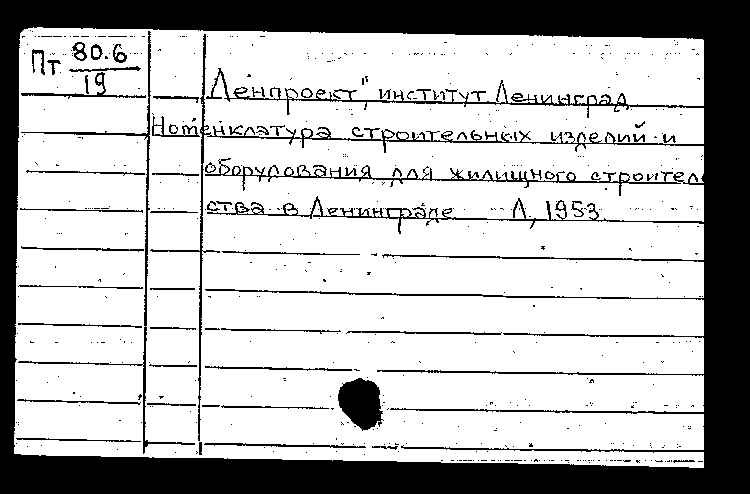 Пт 80.6
19
Ленпроект", институт Ленинград
Номенклатура строительных изделий и
оборудования для жилищного строитель
ства в Ленинграде Л, 1953